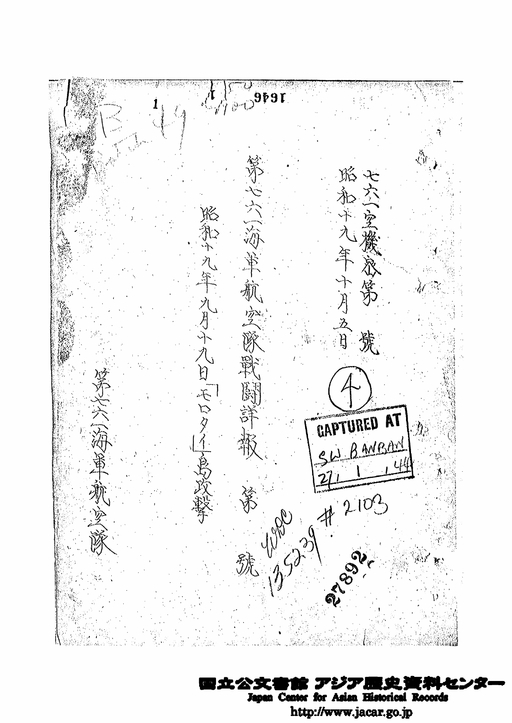 1646
1
1
B
49
七六一空機密第　號
昭和十九年十月五日
第七六一海軍航空隊戰鬪詳報　第　號
昭和十九年九月十九日「モロタイ」島攻擊
第七六一海軍航空隊
4
CAPTURED AT
27, 1, 44
# 2103
WDC
13.52.39
27892
国立公文書館 アジア歴史資料センター
Japan Center for Asian Historical Records
http://www.jacar.go.jp